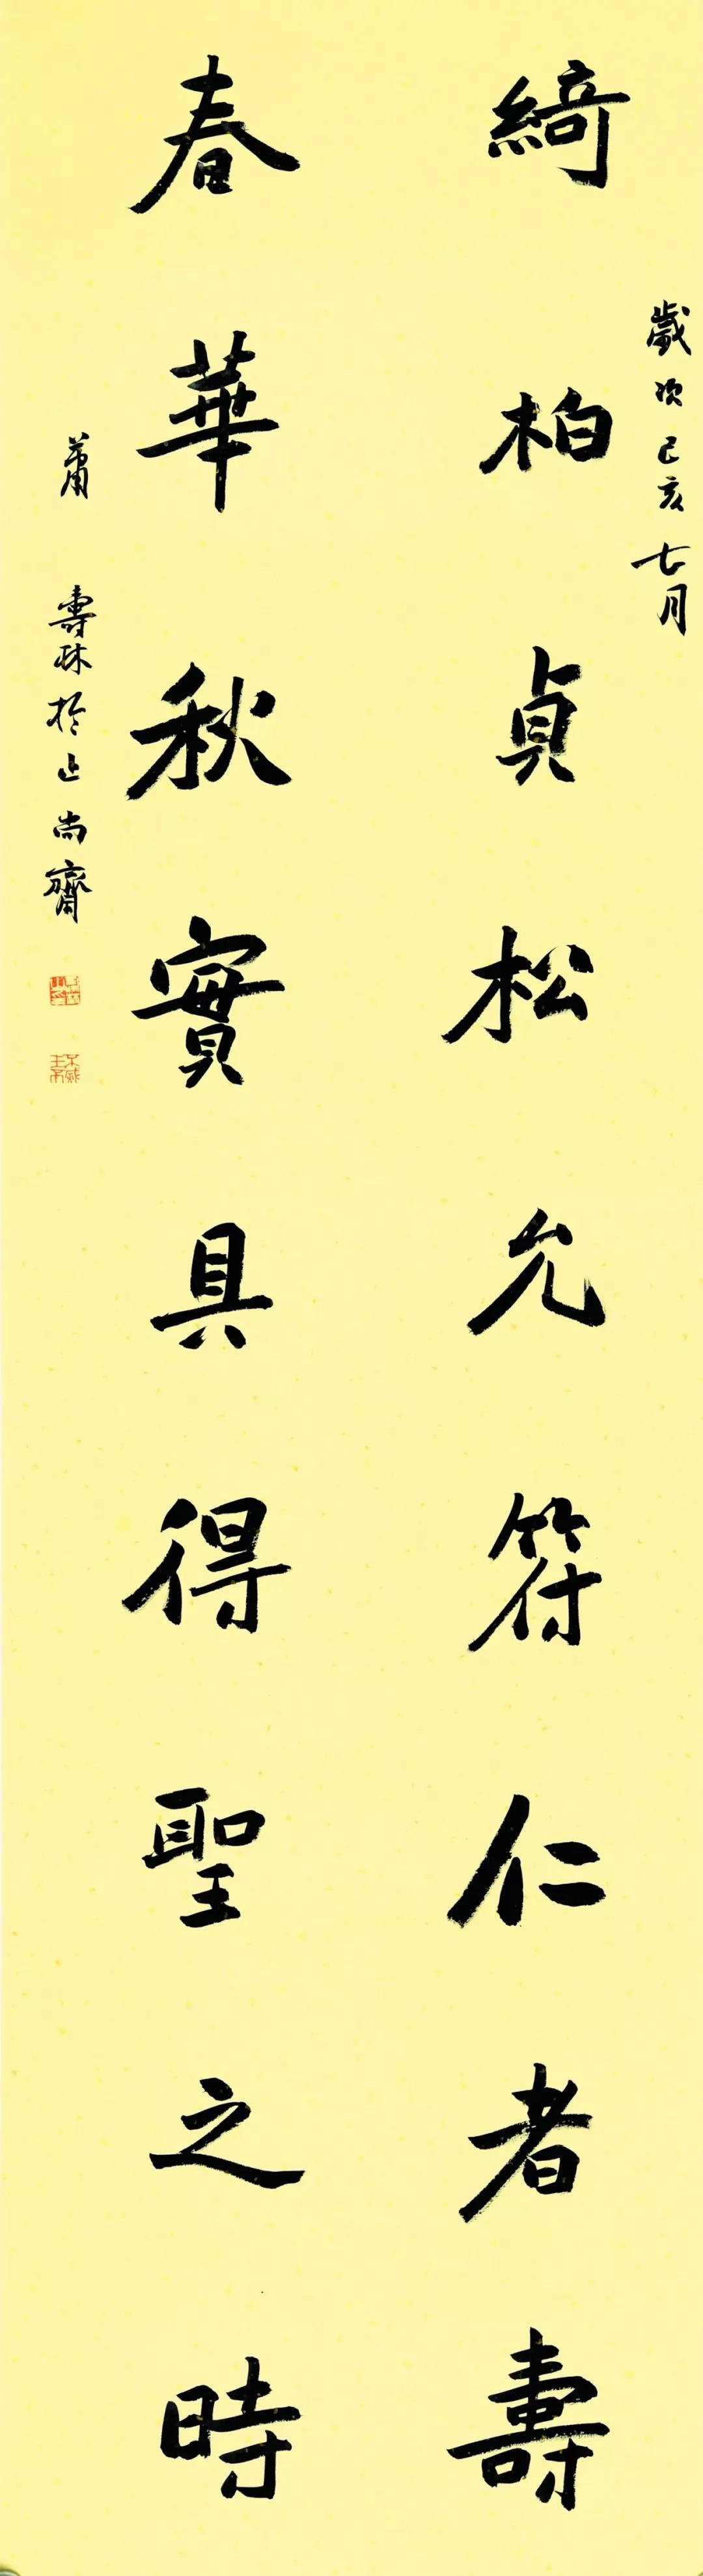 歲次己亥七月
綺柏貞松允符仁者壽
春華秋實具得聖之時
蕭壽林於止尚齋